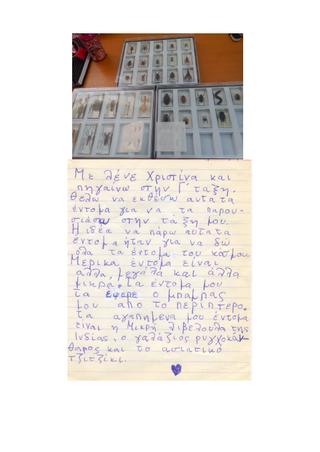 Με λένε Χριστίνα και
πηγαίνω στην Γ΄ τάξη.
θέλω να εκθέσω αυτά τα
έντομα για να τα παρου-
σιάσω στην τάξη μου.
Η ιδέα να πάρω αυτά τα
έντομα ήταν για να δώ
όλα τα έντομα του κόσμου.
Μερικά έντομα είναι
άλλα, μεγάλα και άλλα
μικρά. Τα έντομα μου
τα έφερε ο μπαμπάς
μου από το περίπτερο.
τα αγαπημένα μου έντομα
είναι η Μικρή λιβελούλα της
Ινδίας, ο γαλάζιος ρυγχοκάν
θαρος και το ασιατικό
τζιτζίκι.